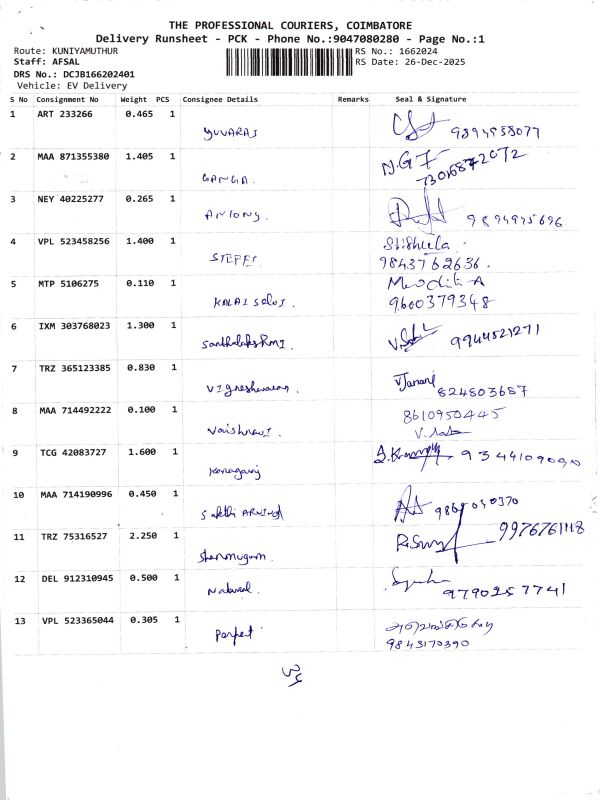 THE PROFESSIONAL COURIERS, COIMBATORE
Delivery Runsheet - PCK - Phone No.:9047080280 - Page No.:1
Route: KUNIYAMUTHUR
RS No.: 1662024
Staff: AFSAL
RS Date: 26-Dec-2025
DRS No.: DCJB166202401
Vehicle: EV Delivery
S No Consignment No Weight PCS Consignee Details Remarks Seal & Signature
1 ART 233266 0.465 1
YUVARAJ
2 MAA 871355380 1.405 1
GANGA.
3 NEY 40225277 0.265 1
ANTONY. 9894945696
4 VPL 523458256 1.400 1
9843762636.
5 MTP 5106275 0.110 1
KALAI selvi. 9600379348
6 IXM 303768023 1.300 1
9944521271
7 TRZ 365123385 0.830 1
Vigneshwaran. 824803687
8 MAA 714492222 0.100 1 8610950445
Vaishnavi.
9 TCG 42083727 1.600 1
Kanagaraj
10 MAA 714190996 0.450 1
Sakthi ARVIND
11 TRZ 75316527 2.250 1
Shanmugam.
12 DEL 912310945 0.500 1
9790257741
13 VPL 523365044 0.305 1
Perfect. 9843170390